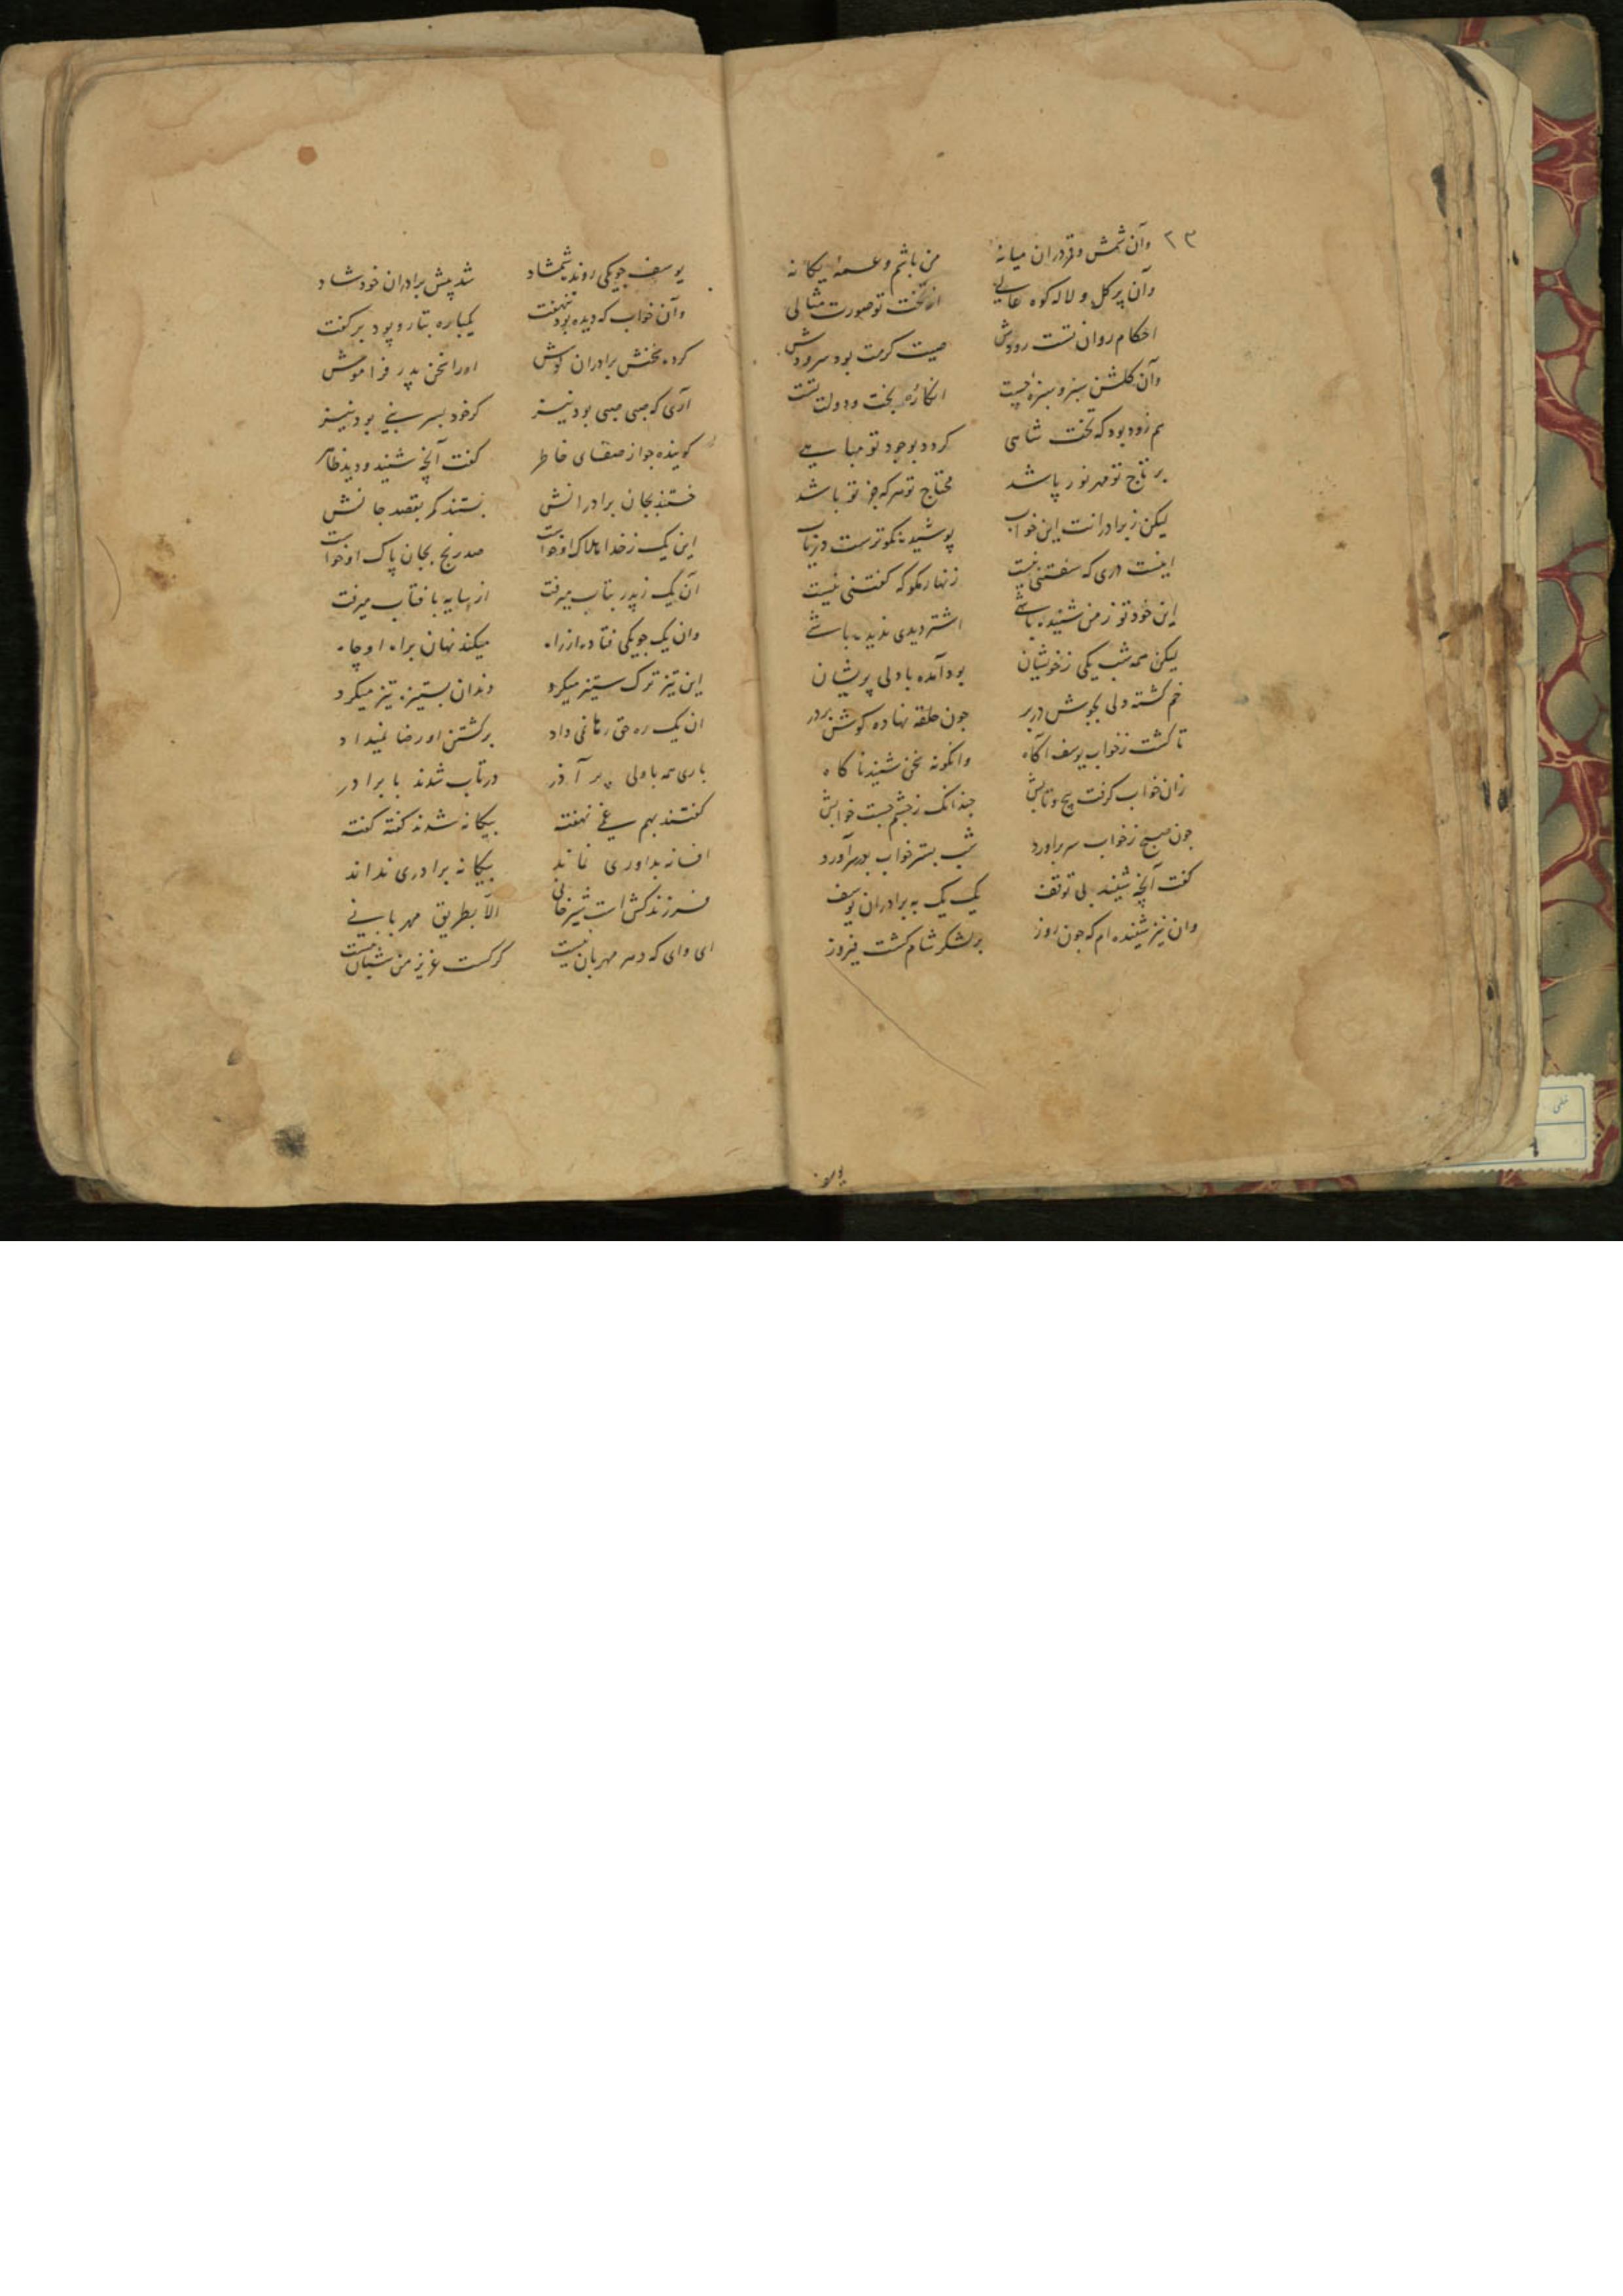 ۲۳
وآن شمس و قمر دران میانه من باشم و عمهٔ یکانه
وآن پر کل و لاله کوه عالی از تخت تو صورت مثالی
احکام روان تست رودش صیت کرمت بود سرودش
وآن کلشن سبز و سبزه چیست انکاره بخت و دولت تست
هم زود بود که تخت شاهی کردد بوجود تو مباهی
بر تاج تو مهر نور پاشد محتاج تو هر که جز تو باشد
لیکن ز برادرانت این خواب پوشیده نکوترست دریاب
اینست دری که سفتنی نیست زنهار مکو که کفتنی نیست
این خود تو ز من شنیده باشی اشتر دیدی ندیده باشی
لیکن همه شب یکی ز خویشان بود آمده با دلی پریشان
خم کشته ولی بجوش در بر چون حلقه نهاده کوش بر در
تا کشت ز خواب یوسف آکاه وانکونه سخن شنید ناکاه
زان خواب کرفت پیچ و تابش چندانک ز چشم جست خوابش
چون صبح ز خواب سر براورد شب بستر خواب بر سر آورد
کفت آنچه شنید بی توقف یک یک به برادران یوسف
وان نیز شنیده ام که چون روز بر لشکر شام کشت فیروز
یوسف
یوسف چو یکی رونده شمشاد شد پیش برادران خود شاد
وآن خواب که دیده بود ننهفت یکباره بتار و پود بر کفت
کرده سخنش برادران کوش اورا سخن پدر فراموش
آری که صبی صبی بود نیز کر خود بسر نبی بود نیز
کوینده چو از صفای خاطر کفت آنچه شنید و دید ظاهر
خستند بجان برادرانش بستند کمر بقصد جانش
این یک ز خدا هلاک او خواست صد رنج بجان پاک او خواست
آن یک ز پدر بتاب میرفت از سایه بافتاب میرفت
وان یک چو یکی فتاده از راه میکند نهان براه او چاه
این تیز ترک ستیز میکرد دندان بستیزه تیز میکرد
ان یک ره حق رهائی داد بر کشتن او رضا نمیداد
باری همه با دلی پر آذر در تاب شدند با برادر
کفتند بهم غمی نهفته بیکانه شدند کفته کفته
افسانه بداوری نماند بیکانه برادری نداند
فرزند کش است شیر خانی الا بطریق مهربانی
ای وای که دهر مهربان نیست کرکست عزیز من شبان نیست